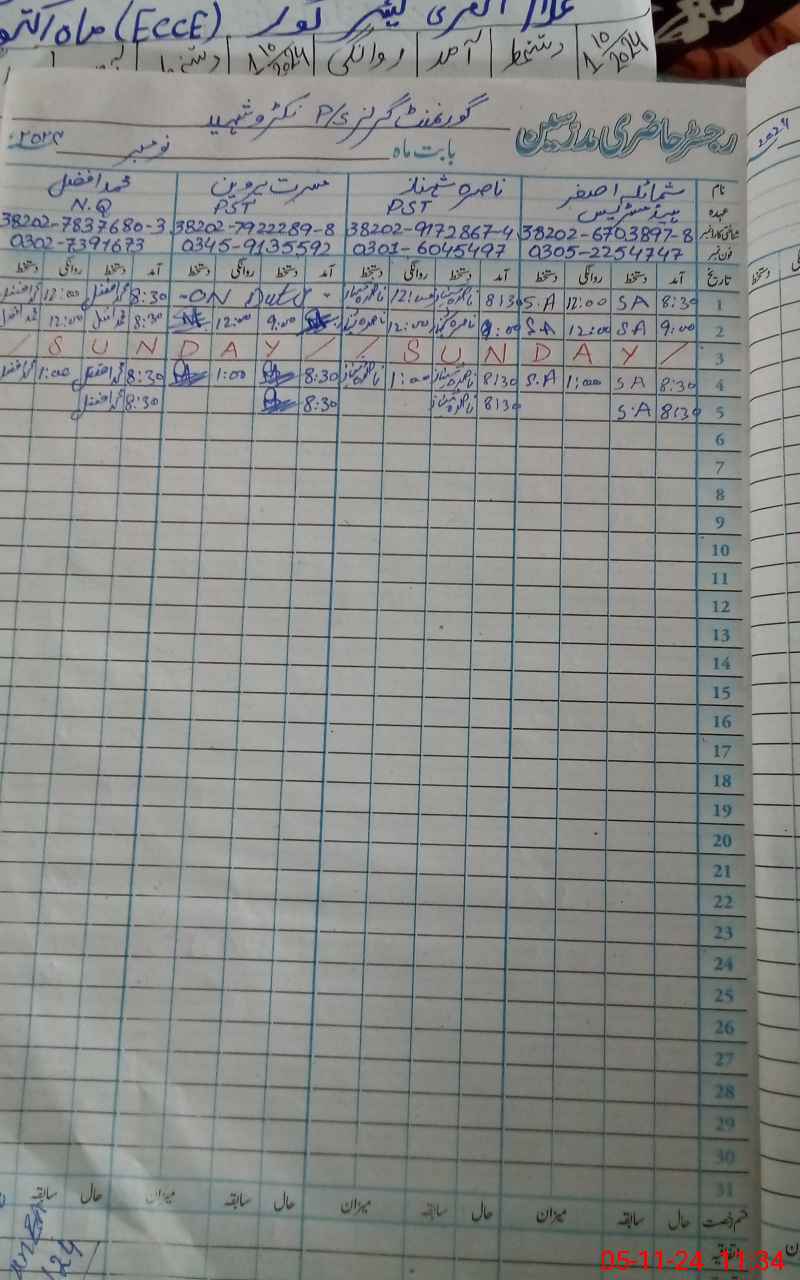 ماہ اکتوبر (ECCE)
1 10/2024 دستخط آمد روانگی 1 10/2024 دستخط
رجسٹر حاضری مدرسین گورنمنٹ گرلز P/S
بابت ماہ نومبر ۲۰۲۴ء
2024
نام شمائلہ اصغر ناصرہ شہناز مسرت پروین محمد افضل
عہدہ ہیڈ مسٹریس PST PST N.Q
شناختی کارڈ نمبر 38202-6703897-8 38202-9172867-4 38202-7922289-8 38202-7837680-3
فون نمبر 0305-2254747 0301-6045497 0345-9135592 0302-7391673
تاریخ آمد دستخط روانگی دستخط آمد دستخط روانگی دستخط آمد دستخط روانگی دستخط آمد دستخط روانگی دستخط
1 8:30 S A 12:00 S.A 8:30 ناصرہ شہناز 12:00 ناصرہ شہناز -ON Duty- 8:30 محمد افضل 12:00 محمد افضل
2 9:00 S A 12:00 S.A 9:00 ناصرہ شہناز 12:00 ناصرہ شہناز 9:00 12:00 8:30 محمد افضل 12:00 محمد افضل
3 / S U N D A Y / / S U N D A Y /
4 8:30 S A 1:00 S.A 8:30 ناصرہ شہناز 1:00 ناصرہ شہناز 8:30 1:00 8:30 محمد افضل 1:00 محمد افضل
5 8:30 S.A 8:30 ناصرہ شہناز 8:30 8:30 محمد افضل
6
7
8
9
10
11
12
13
14
15
16
17
18
19
20
21
22
23
24
25
26
27
28
29
30
31
قسم رخصت حال سابقہ میزان حال سابقہ میزان حال سابقہ میزان حال سابقہ
اتفاقیہ
05-11-24 11:34